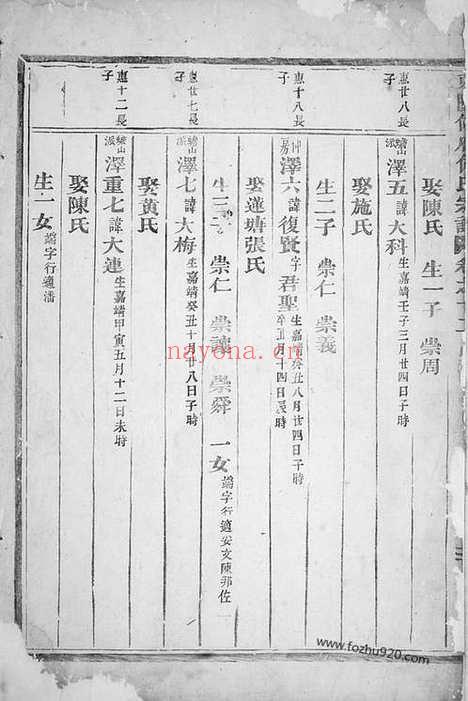 娶陳氏 生一子 崇周
惠廿八長子
澤五 諱大科 生嘉靖壬子三月廿四日子時
娶施氏
生二子 崇仁 崇義
惠十八長子
澤六 諱復賢 字君聖 生嘉靖癸丑八月廿四日子時
娶蓮塘張氏
生三子 崇仁 崇謙 崇舜 一女 端字行適安文陳邦佐
惠廿七長子
澤七 諱大梅 生嘉靖癸丑十月廿八日子時
娶黃氏
惠十二長子
澤重七 諱大連 生嘉靖甲寅五月十二日未時
娶陳氏
生一女 端字行適潘
nayona.cn
www.fozhu920.com